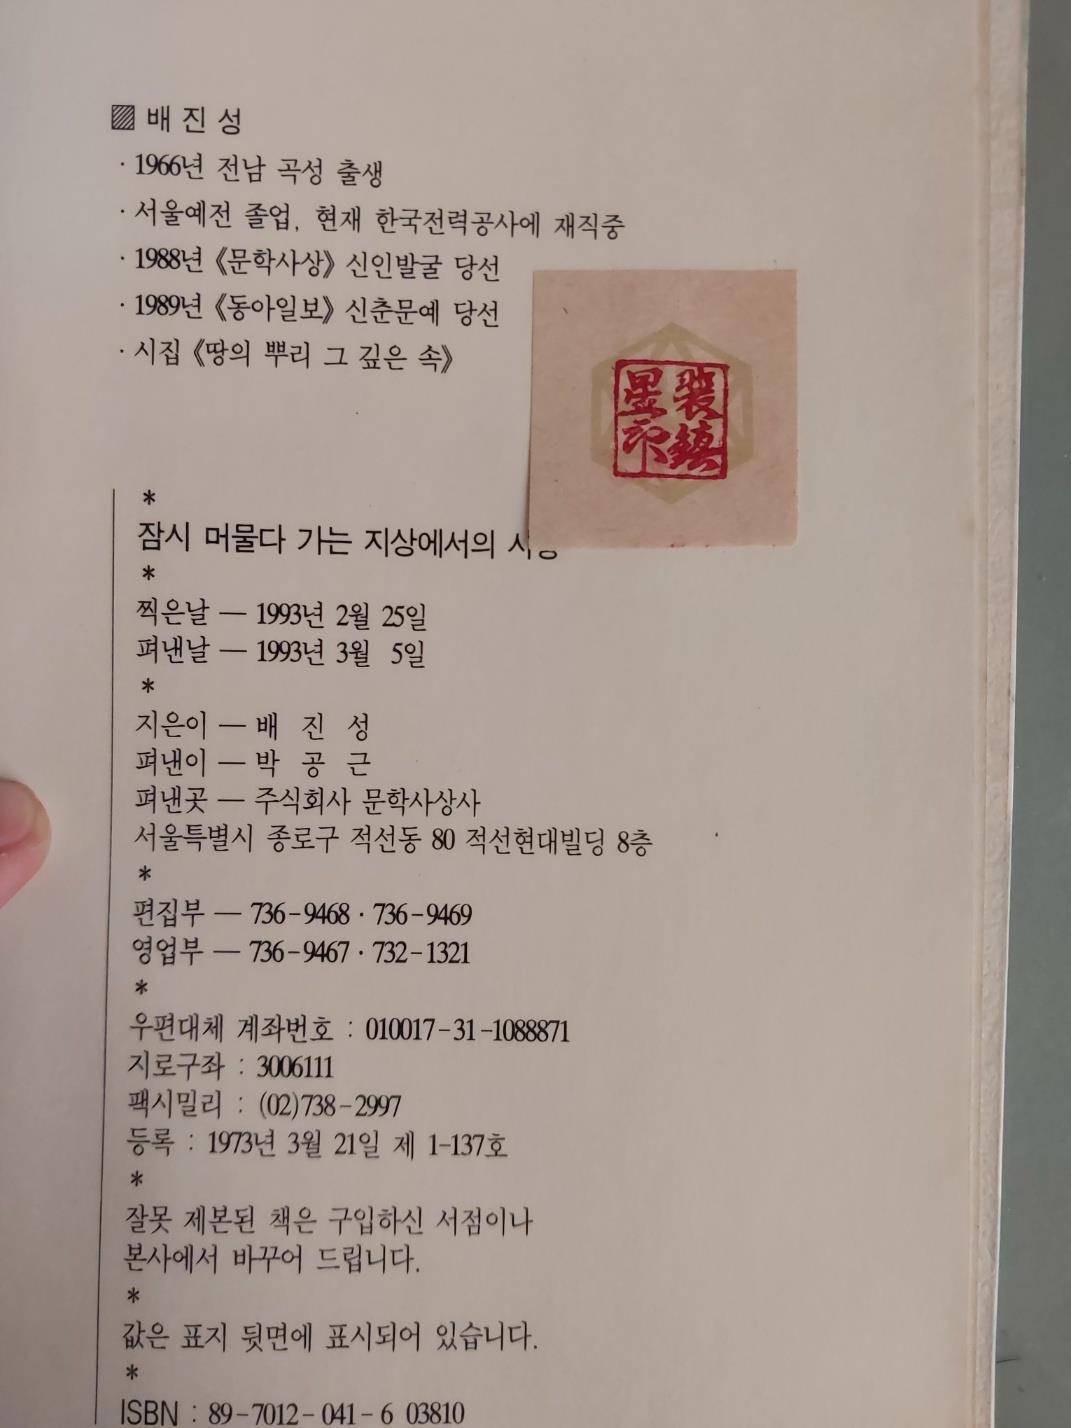 ▨ 배 진 성
· 1966년 전남 곡성 출생
· 서울예전 졸업, 현재 한국전력공사에 재직중
· 1988년 《문학사상》 신인발굴 당선
· 1989년 《동아일보》 신춘문예 당선
· 시집 《땅의 뿌리 그 깊은 속》
裴鎭
星印
*
잠시 머물다 가는 지상에서의
*
찍은날 — 1993년 2월 25일
펴낸날 — 1993년 3월 5일
*
지은이 — 배 진 성
펴낸이 — 박 공 근
펴낸곳 — 주식회사 문학사상사
서울특별시 종로구 적선동 80 적선현대빌딩 8층
*
편집부 — 736-9468 · 736-9469
영업부 — 736-9467 · 732-1321
*
우편대체 계좌번호 : 010017-31-1088871
지로구좌 : 3006111
팩시밀리 : (02)738-2997
등록 : 1973년 3월 21일 제 1-137호
*
잘못 제본된 책은 구입하신 서점이나
본사에서 바꾸어 드립니다.
*
값은 표지 뒷면에 표시되어 있습니다.
*
ISBN : 89-7012-041-6 03810